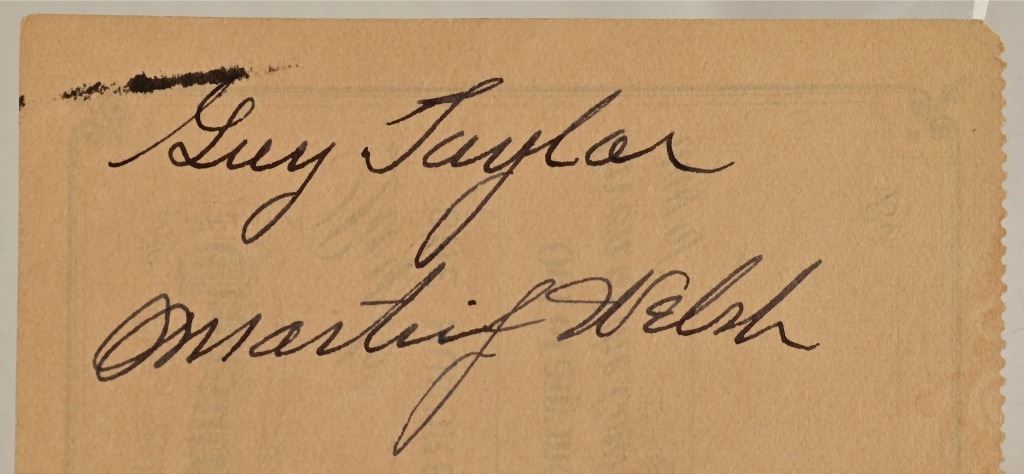 Guy Taylor
Martin J Welsh